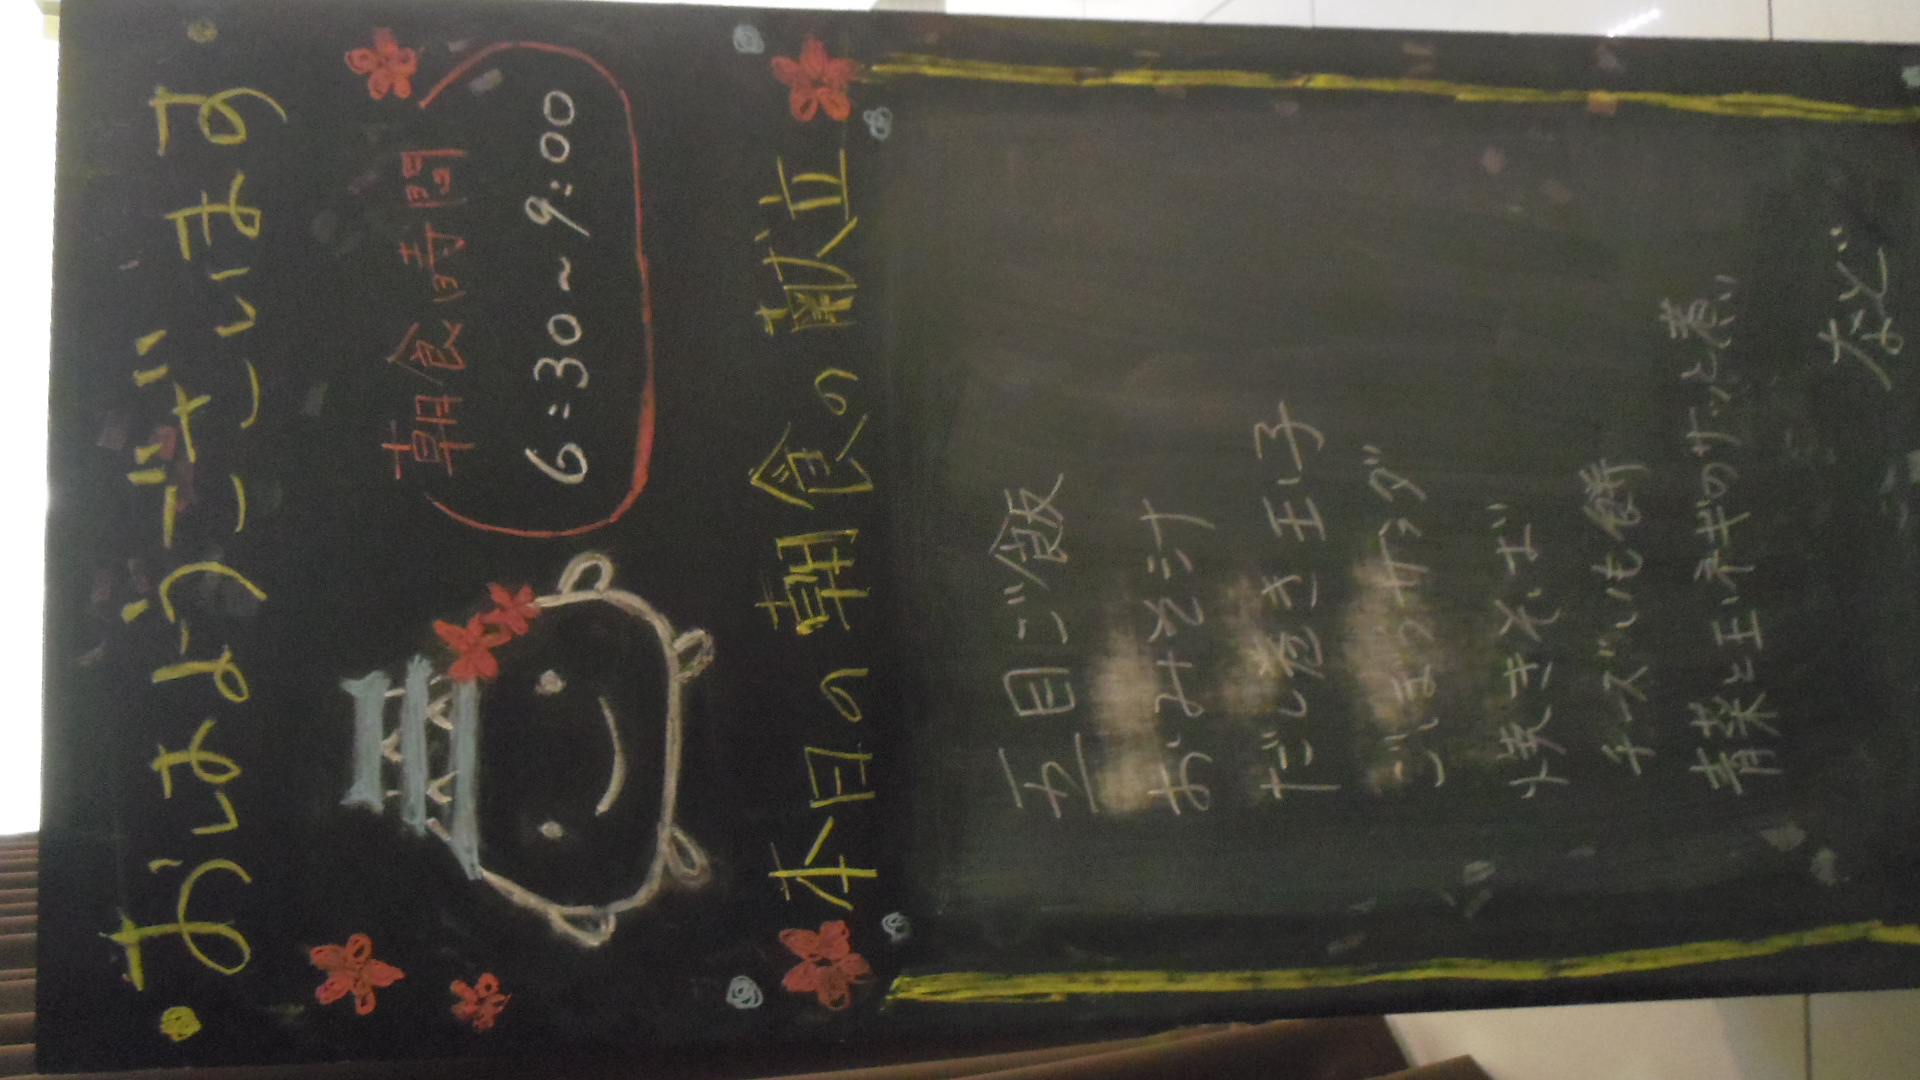 おはようございます
朝食時間
6:30~9:00
本日の朝食の献立
五目ご飯
おみそ汁
だし巻き玉子
ごまサラダ
焼きそば
チーズいも餅
青菜と玉ネギのサッと煮
など